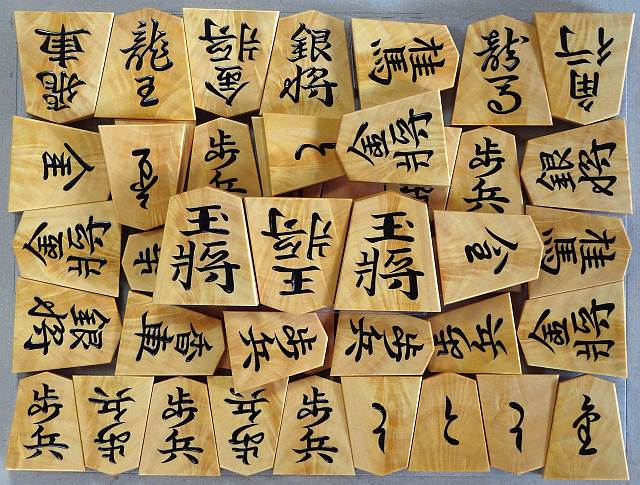 飛車
龍王
金将
銀将
桂馬
龍馬
角行
歩兵
と
金将
歩兵
銀将
金将
歩
王將
王将
王將
桂馬
銀将
香車
歩兵
歩兵
歩兵
金将
歩兵
歩兵
歩兵
歩兵
歩兵
と
と
と